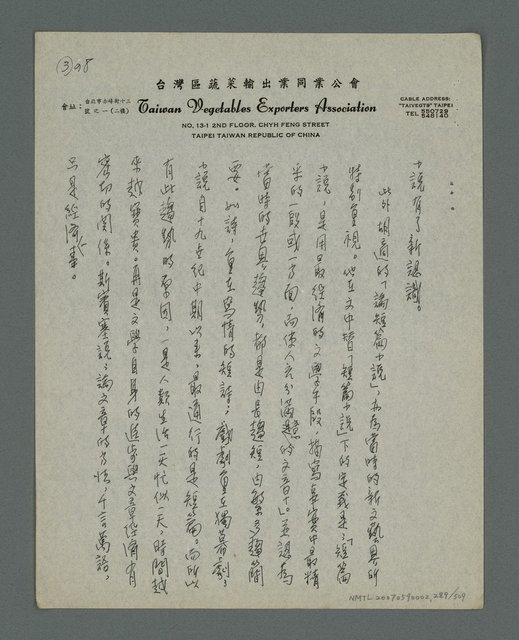 ③98
台灣區蔬菜輸出業同業公會
會址：台北市赤峰街十三號之一(二樓)
Taiwan Vegetables Exporters Association
CABLE ADDRESS:
"TAIVEGTS" TAIPEI
TEL 550729
548140
NO. 13-1 2ND FLOOR, CHYH FENG STREET
TAIPEI TAIWAN REPUBLIC OF CHINA
小說有了新認識。
此外胡適的「論短篇小說」，亦為當時的新文藝界所
特別重視。他在文中替「短篇小說」下的定義是：「短篇
小說，是用最經濟的文學手段，描寫事實中最精
采的一段或一方面，而使人充分滿意的文章」。並認為
當時的世界趨勢，都是由長趨短，由繁多趨簡
要。如詩，重在寫情的短詩；戲劇重在獨幕劇；
小說自十九世紀中期以來，最通行的是短篇。而所以
有此趨勢的原因，一是人類生活一天忙似一天，時間越
來越寶貴。再是文學自身的進步與文章經濟有
密切的關係。斯賓塞說：論文章的方法，千言萬語，
只是經濟一事。
NMTL20070590002, 289/509